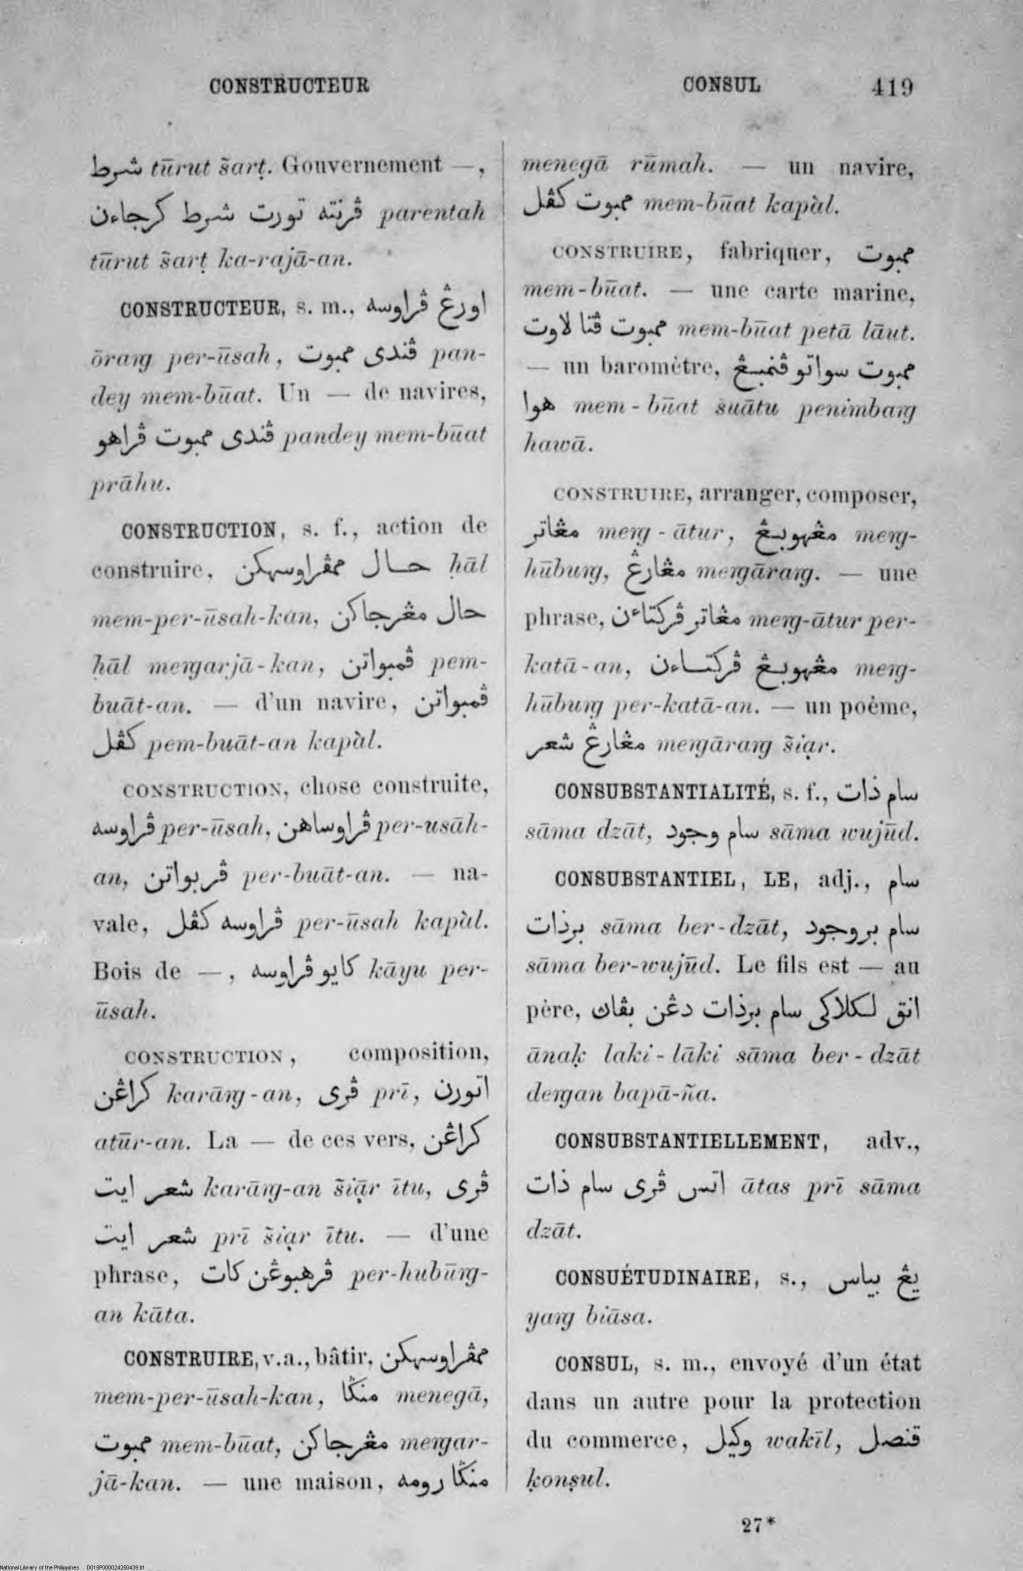 CONSTRUCTEUR
CONSUL 419
شرط tūrut šarṭ. Gouvernement —,
ڤرنته تورت شرط كرجاءن parentah
tūrut šarṭ ka-rajā-an.
CONSTRUCTEUR, s. m., اورڠ ڤراوسه
ōraŋg per-ūsah, ڤندى ممبوت pan-
dey mem-būat. Un — de navires,
ڤندى ممبوت ڤراهو pandey mem-būat
prāhu.
CONSTRUCTION, s. f., action de
construire, حال ممڤراوسهكن ḥāl
mem-per-ūsah-kan, حال مڠرجاكن
ḥāl meŋgarjā-kan, ڤمبواتن pem-
buāt-an. — d'un navire, ڤمبواتن
كڤل pem-buāt-an kapàl.
CONSTRUCTION, chose construite,
ڤراوسه per-ūsah, ڤراوساهن per-usāh-
an, ڤربواتن per-buāt-an. — na-
vale, ڤراوسه كڤل per-ūsah kapàl.
Bois de —, كايو ڤراوسه kāyu per-
ūsah.
CONSTRUCTION, composition,
كراڠن karāŋg-an, ڤرى prī, اتورن
atūr-an. La — de ces vers, كراڠن
شعر ايت karāŋg-an šiạ̄r ītu, ڤرى
شعر ايت prī šiạr ītu. — d'une
phrase, ڤرهبوڠن كات per-hubūŋg-
an kāta.
CONSTRUIRE, v.a., bâtir, ممڤراوسهكن
mem-per-ūsah-kan, منݢا menegā,
ممبوت mem-būat, مڠرجاكن meŋgar-
jā-kan. — une maison, منݢا رومه
menegā rūmah. — un navire,
ممبوت كڤل mem-būat kapàl.
CONSTRUIRE, fabriquer, ممبوت
mem-būat. — une carte marine,
ممبوت ڤتا لاوت mem-būat petā lāut.
— un baromètre, ممبوت سواتو ڤنمبڠ
هوا mem-būat suātu penimbaŋg
hawā.
CONSTRUIRE, arranger, composer,
مڠاتر meŋg-ātur, مڠهوبڠ meŋg-
hūbuŋg, مڠارڠ meŋgāraŋg. — une
phrase, مڠاتر ڤركتاءن meŋg-ātur per-
katā-an, مڠهوبڠ ڤركتاءن meŋg-
hūbuŋg per-katā-an. — un poème,
مڠارڠ شعر meŋgāraŋg šiạr.
CONSUBSTANTIALITÉ, s. f., سام ذات
sāma dzāt, سام وجود sāma wujūd.
CONSUBSTANTIEL, LE, adj., سام
برذات sāma ber-dzāt, سام بروجود
sāma ber-wujūd. Le fils est — au
père, انق لكلاكى سام برذات دڠن بڤاڽ
ānaḳ laki-lāki sāma ber-dzāt
deŋgan bapā-ña.
CONSUBSTANTIELLEMENT, adv.,
اتس ڤرى سام ذات ātas prī sāma
dzāt.
CONSUÉTUDINAIRE, s., يڠ بياس
yaŋg biāsa.
CONSUL, s. m., envoyé d'un état
dans un autre pour la protection
du commerce, وكيل wakīl, قنصل
ḳonṣul.
27*
National Library of the Philippines